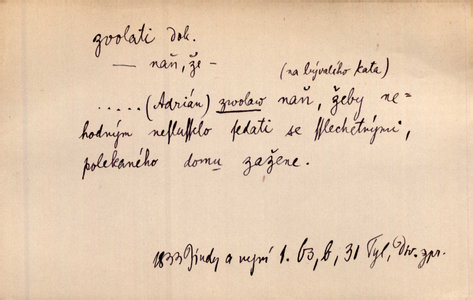 zvolati dok.
— naň, že —
(na bývalého kata)
.....(Adrián) zwolaw naň, žeby ne=
hodným neslusselo sedati se sslechetnými,
polekaného domu zažene.
1833 Jindy a nyní 1. 63, b, 31 Tyl, Div. zpr.